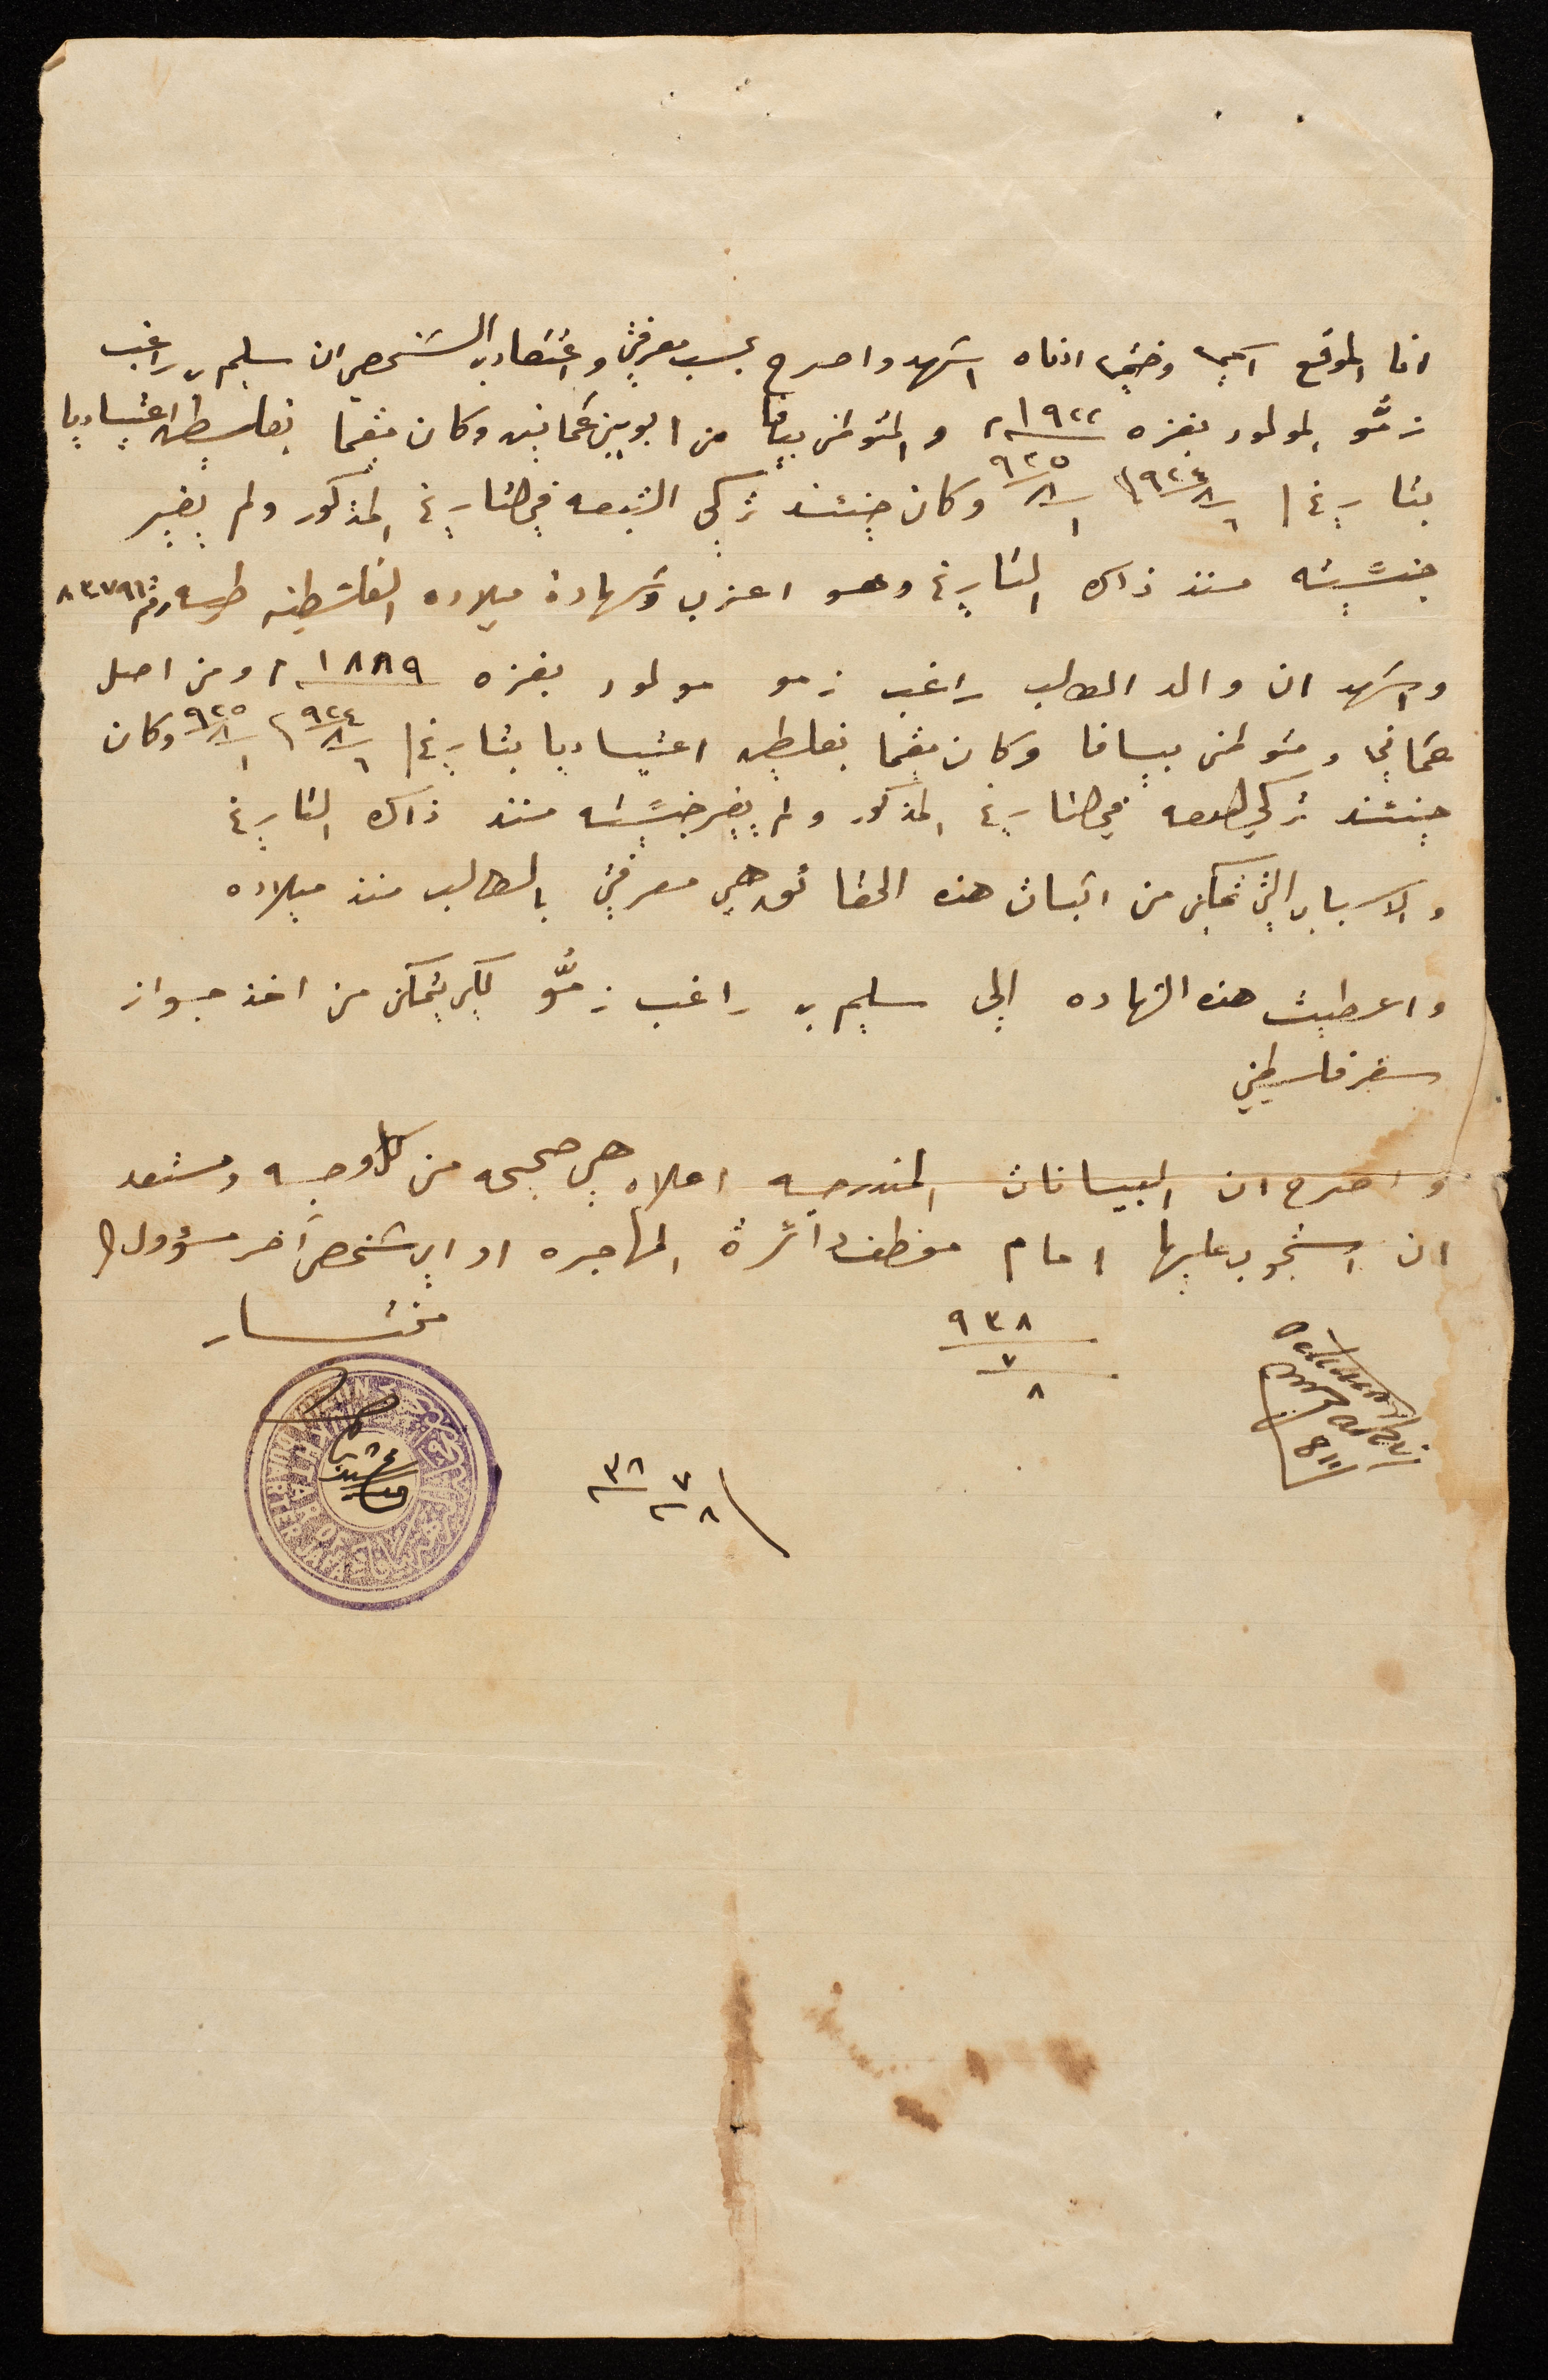 انا الموقع اسمي وختمي ادناه اشهد واصرح بحسب معرفتي واعتقادي الشخصي ان سليم بن راغب
زمُّو المولود بغزه سنة ١٩٢٢ والمتوطن بيافا من ابويين عثمانين وكان مقيما بفلسطين اعتياديا
بتاريخ ٦/٨/٩٢٤ و ١/٨/٩٢٥ وكان حينئذ تركي التبعه في التاريخ المذكور ولم يغير
جنسّيته منذ ذاك التاريخ وهو اعزب وشهادة ميلاده الفلسطينه طيه رقم ٨٣٧٩٦
واشهد ان والد الطالب راغب زمو مولود بغزه سنة ١٨٨٩ ومن اصل
عثماني ومتوطن بيافا وكان مقيما بفلسطين اعتياديا بتاريخ ٦/٨/٩٢٤ و ١/٨/٩٢٥ وكان
حينئذ تركي التبعه في التاريخ المذكور ولم يغير جنسّيته منذ ذاك التاريخ
والاسباب التي تمكني من اثبات هذه الحقائق هي معرفتي بالطالب منذ ميلاده
واعطيت هذه الشهاده الى سليم بن راغب زمُّو لكي يتمكن من اخذ جواز
سفر فلسطيني
واصرح ان البيانات المندرجه اعلاه هي صحيحه من كل وجه ومستعد
ان استجوب عليها امام موظف دائرة المهاجره او اي شخص آخر مسؤول
مختار
٩٣٨
٧
٨
٨/٧/٣٨
811
MUKHTAR OF
QUARTER JAFFA